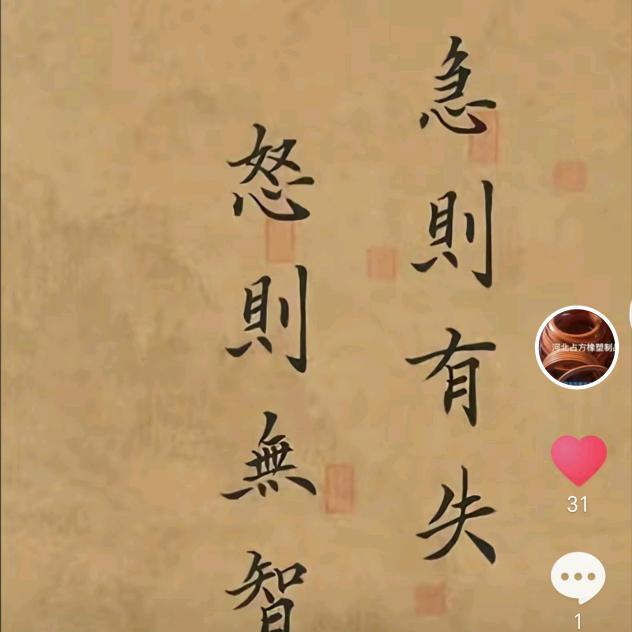 急則有失
怒則無智
河北占方橡塑制品
31
1